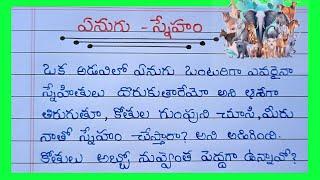 ఏనుగు - స్నేహం
ఒక అడవిలో ఏనుగు ఒంటరిగా ఎవరైనా
స్నేహితులు దొరుకుతారేమో అని ఆశగా
తిరుగుతూ, కోతుల గుంపుని చూసి, మీరు
నాతో స్నేహం చేస్తారా? అని అడిగింది.
కోతులు అబ్బో నువ్వెంత పెద్దగా ఉన్నావో?